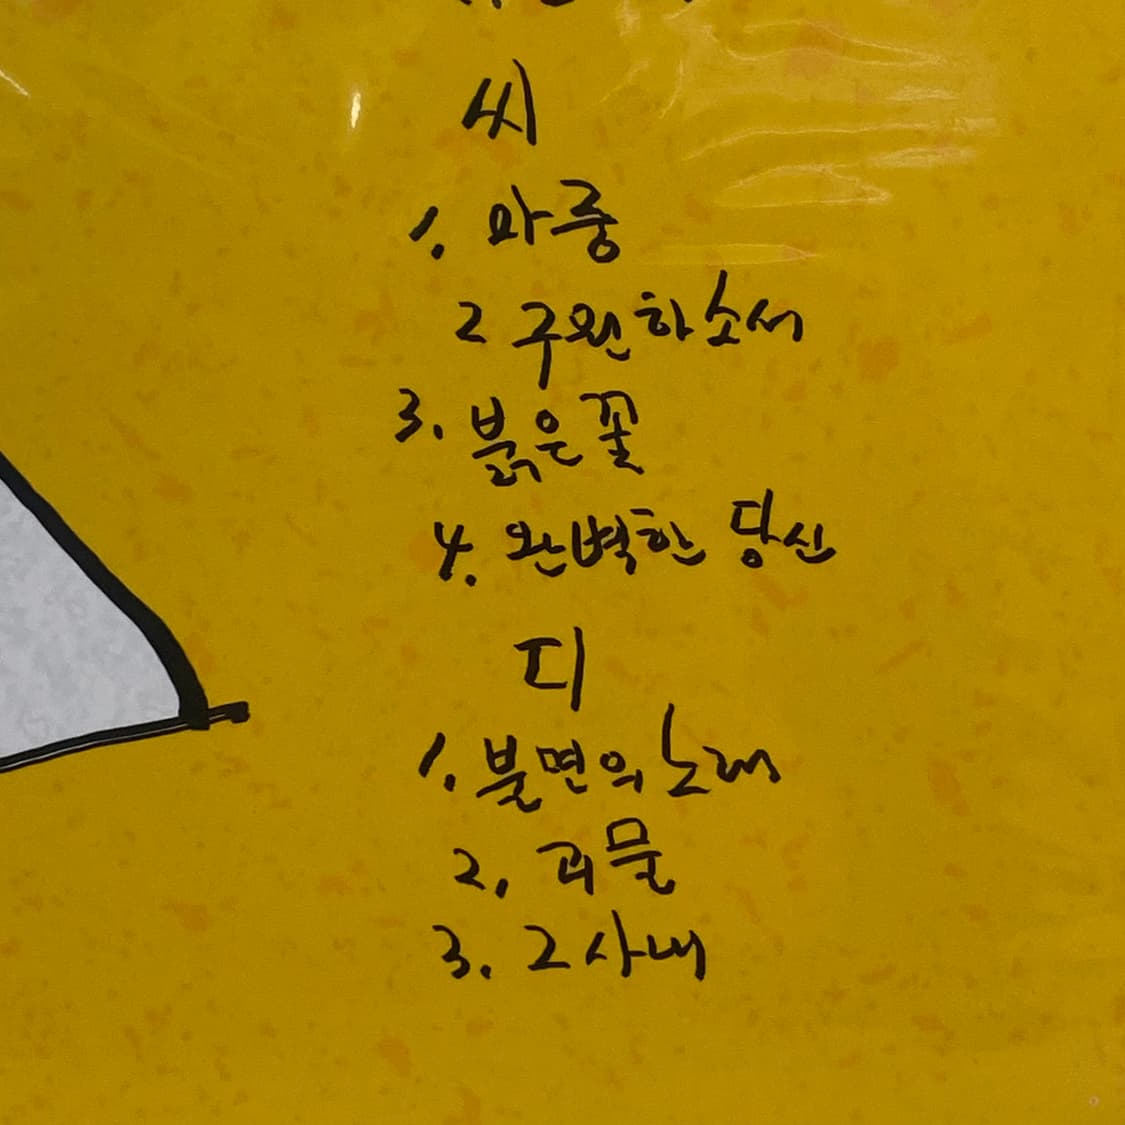 씨
1. 마중
2 구원하소서
3. 붉은 꽃
4. 완벽한 당신
디
1. 불면의 노래
2. 괴물
3. 그 사내